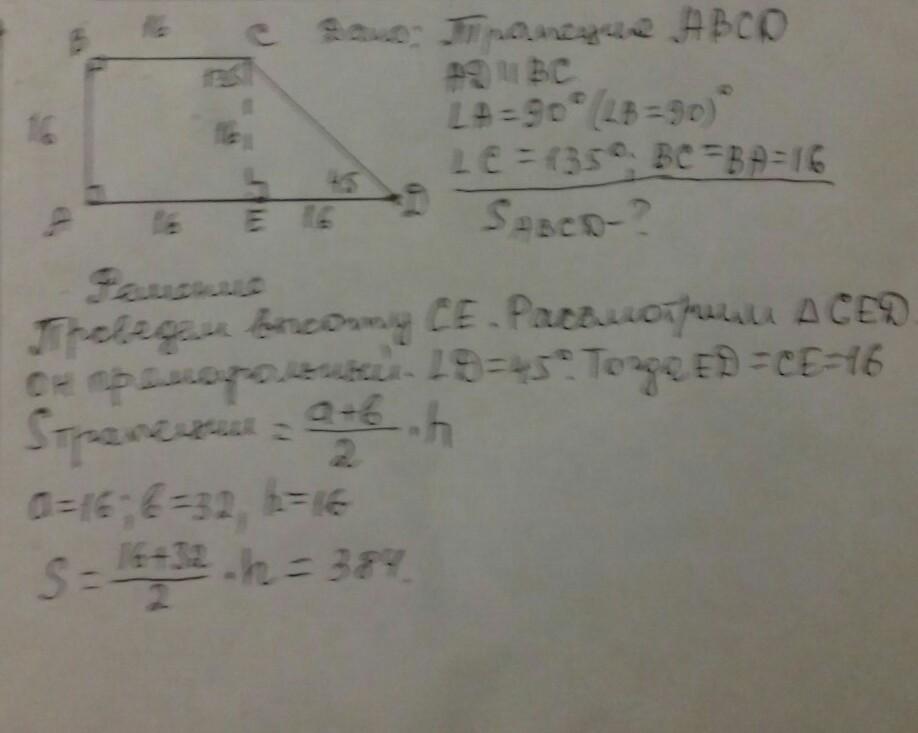 B 16 C Дано: Трапеция ABCD
AD || BC
16 135 16 ∠A=90° (∠B=90)°
∠C=135°; BC=BA=16
45
A 16 E 16 D S ABCD-?
Решение
Проведем высоту CE. Рассмотрим ΔCED
он прямоугольный. ∠D=45°. Тогда ED=CE=16
S трапеции = a+b/2 · h
a=16; b=32, h=16
S = 16+32/2 · h = 384.